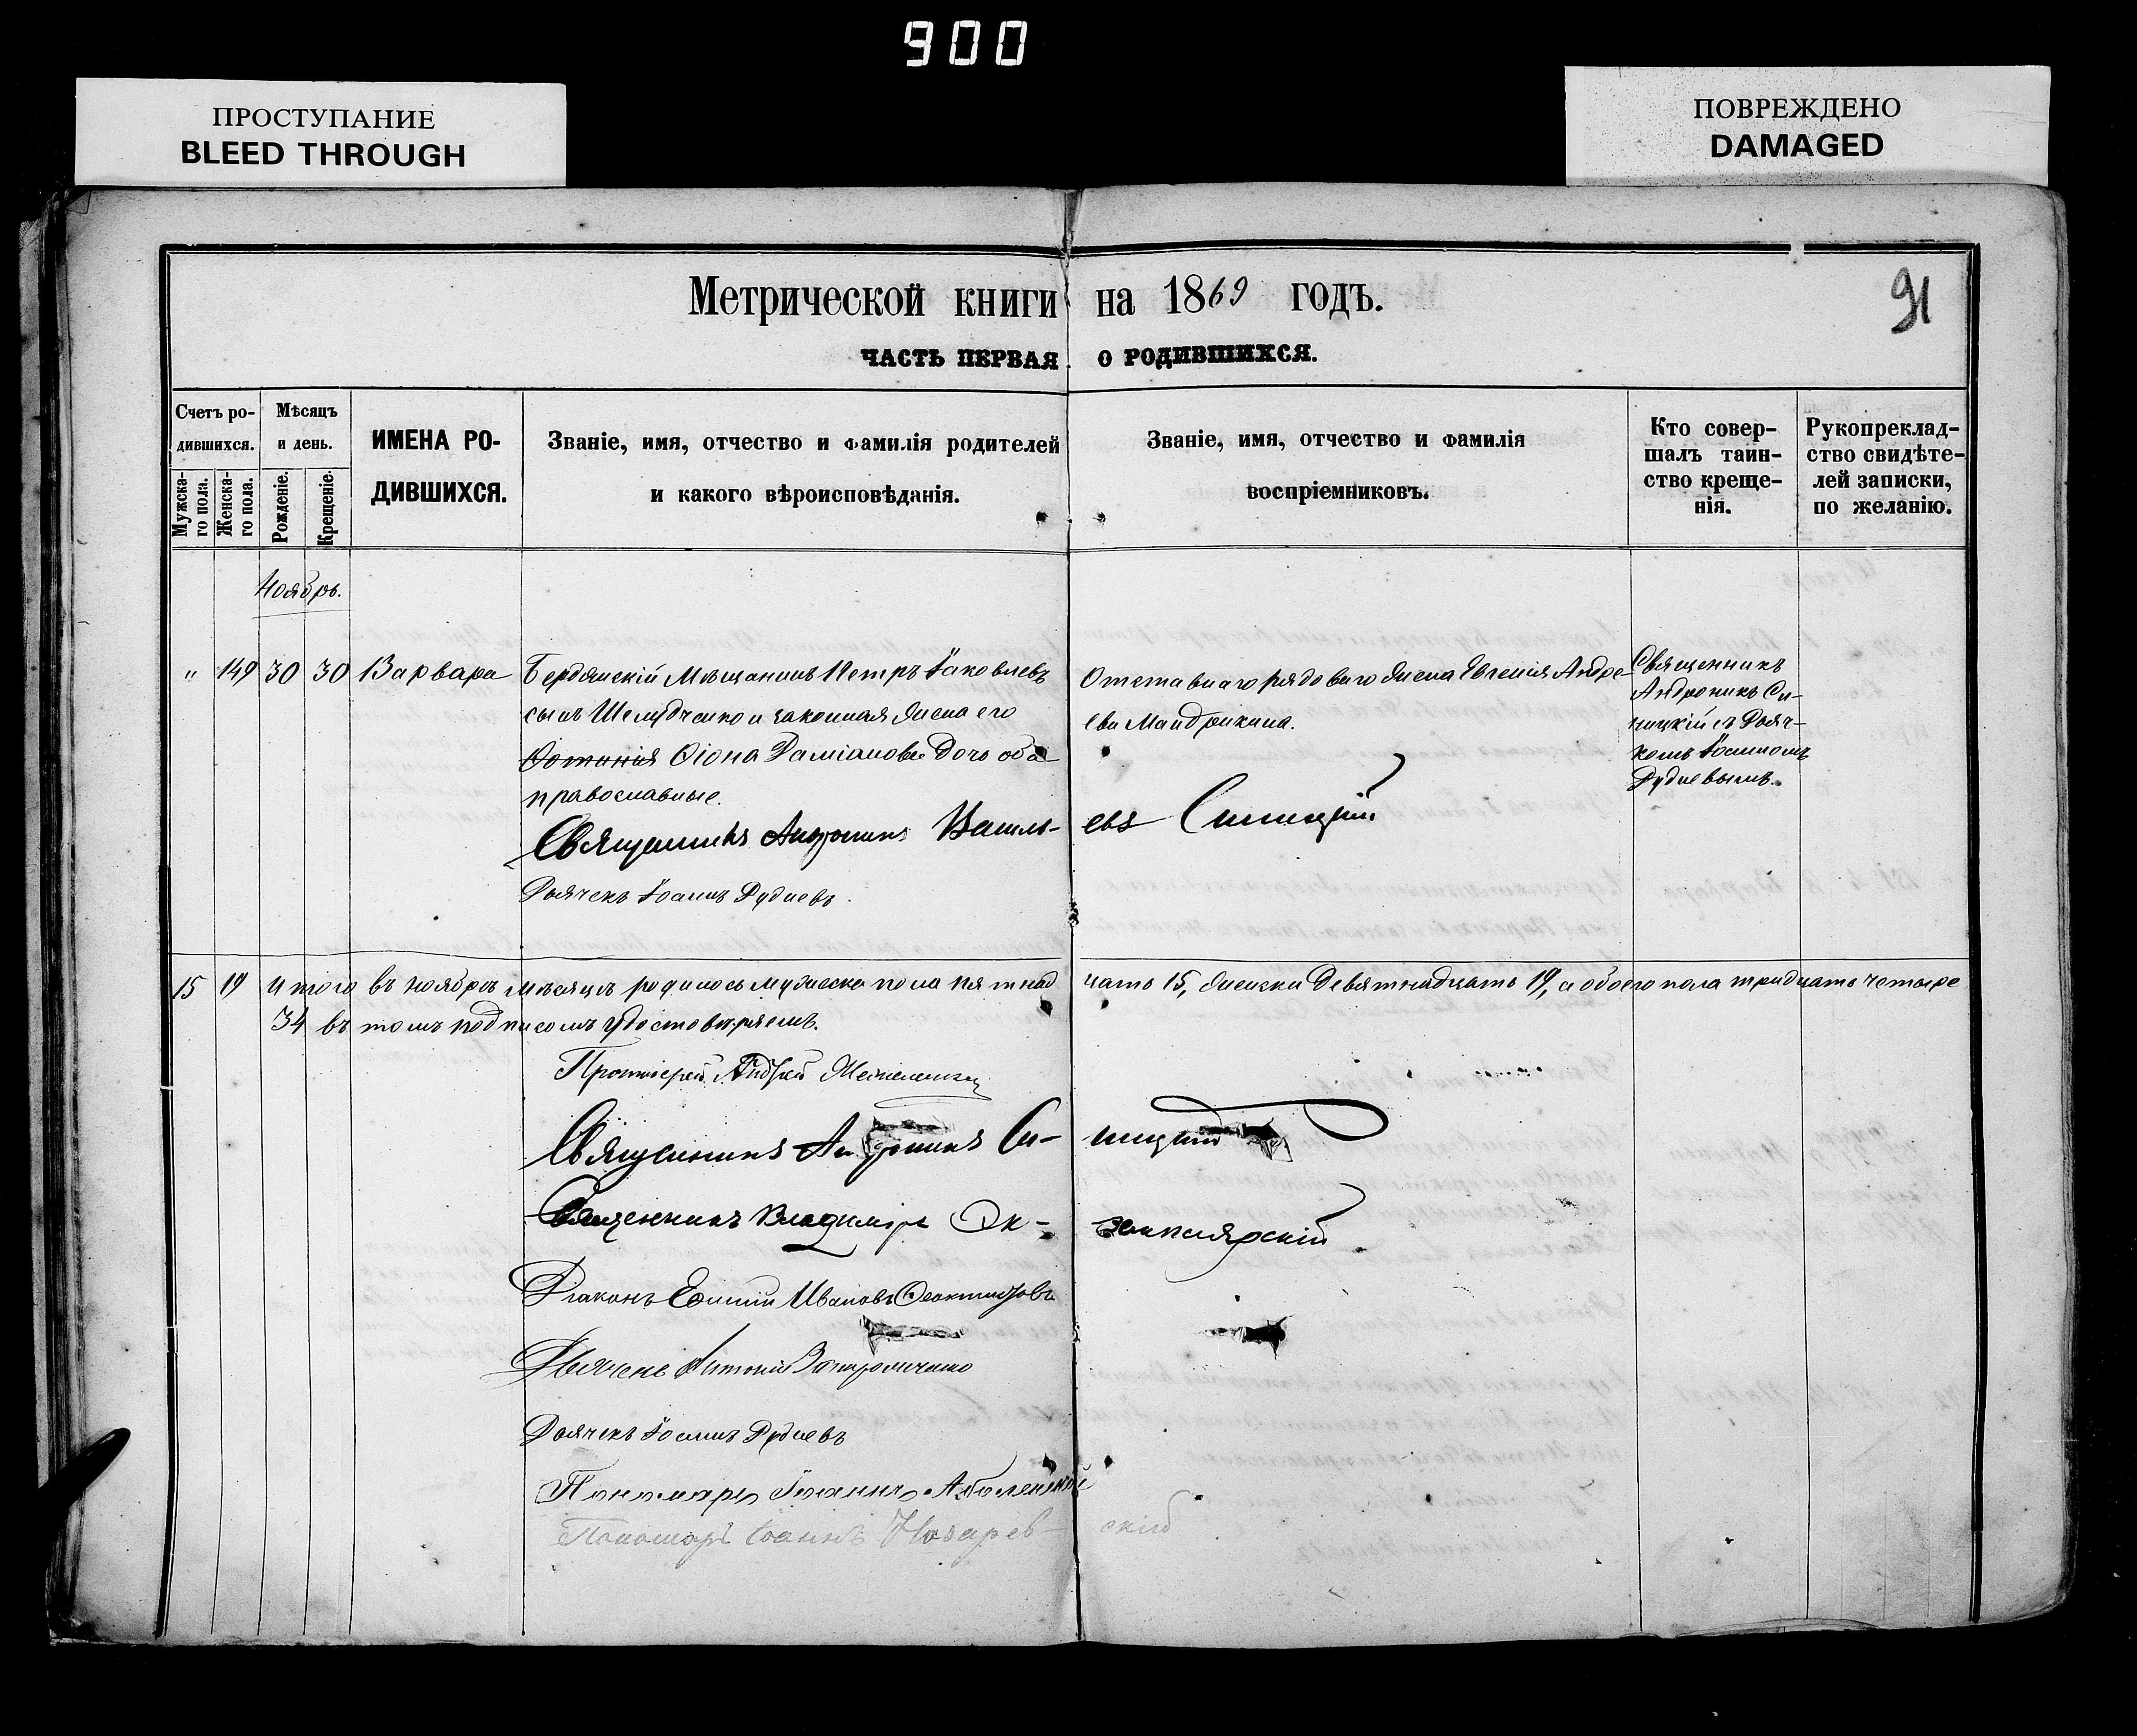 900
ПРОСТУПАНИЕ
BLEED THROUGH
ПОВРЕЖДЕНО
DAMAGED
Метрической книги на 1869 годъ.
91
ЧАСТЬ ПЕРВАЯ О РОДИВШИХСЯ.
Счетъ ро-
дившихся.
Мужска-
го пола.
Женска-
го пола.
Мѣсяцъ
и день.
Рожденіе.
Крещеніе.
ИМЕНА РО-
ДИВШИХСЯ.
Званіе, имя, отчество и фамилія родителей
и какого вѣроисповѣданія.
Званіе, имя, отчество и фамилія
воспріемниковъ.
Кто совер-
шалъ таин-
ство креще-
нія.
Рукопреклад-
ство свидѣте-
лей записки,
по желанію.
Ноябрь.
" 149 30 30 Варвара
Бердянскій Мѣщанинъ Петръ Іаковлевъ
сынъ Шелудченко и законная жена его
Фіона Даміанова Дочь оба
православные.
Отставнаго рядоваго жена Евгенія Андре-
ева Мандрикина.
Священникъ
Андроникъ Си-
ницкій съ Дьяч-
комъ Іоанномъ
Рудневымъ.
Священникъ Андроникъ Василь- евъ Синицкій
Дьячекъ Іоаннъ Рудневъ.
15 19 Итого въ ноябрѣ мѣсяцѣ родилось мужеска пола пятнад цать 15, женска Девятнадцать 19, а обоего пола тридцать четыре
34 въ томъ подписомъ удостовѣряемъ.
Протоіерей Андрей
Священникъ Андроникъ Си- ницкій
Священникъ Владиміръ
Діаконъ Ивановъ Феоктистовъ
Дьячекъ Антоній
Дьячекъ Іоаннъ Рудневъ
Пономарь Іоаннъ
Пономарь Іоаннъ Назарев- скій